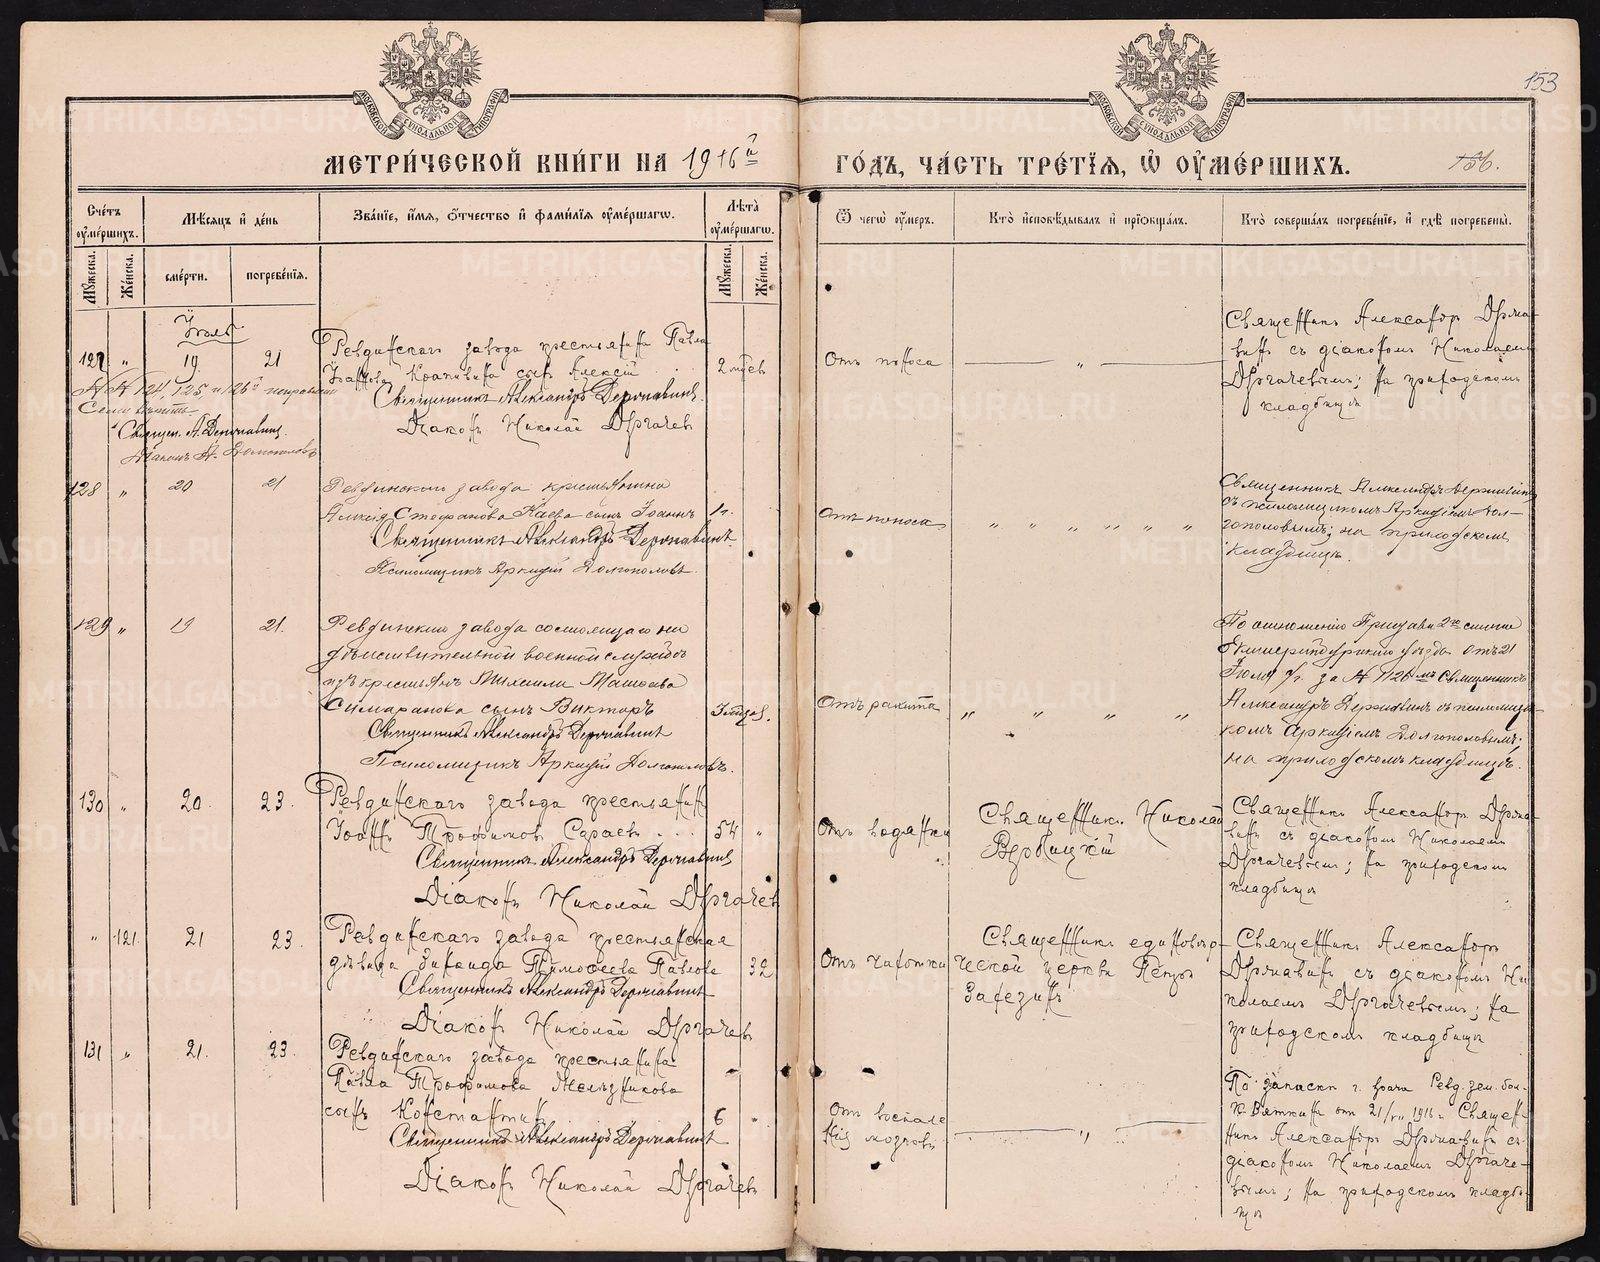 153
МОСКОВСКОЙ СУНОДАЛЬНОЙ ТИПОГРАФІИ
МОСКОВСКОЙ СУНОДАЛЬНОЙ ТИПОГРАФІИ
МЕТРИ́ЧЕСКОЙ КНИ́ГИ НА 1916й
ГО́ДЪ, ЧА́СТЬ ТРЕ́ТЇѦ, Ѡ҆ ОУ҆МЕ́РШИХЪ.
156.
Сче́тъ оу҆ме́ршихъ.
Мѣ́сѧцъ и҆ де́нь
Зва́нїе, и҆́мѧ, ѻ҆́тчество и҆ фами́лїѧ оу҆ме́ршагѡ.
Лѣ́та оу҆ме́ршагѡ.
Ѿ чегѡ̀ оу҆́меръ.
Кто̀ и҆сповѣ́дывалъ и҆ прїѡбща́лъ.
Кто̀ соверша́лъ погребе́нїе, и҆ гдѣ̀ погребены̀.
Мꙋ́жеска.
Же́нска.
сме́рти.
погребе́нїѧ.
Мꙋ́жеска.
Же́нска.
Іюль
127 " 19 21
Ревдинскаго завода крестьянина Павла
Іоаннова Крапивина сынъ Алексій
2 мѣс.
Священникъ Александръ Державинъ.
Діаконъ Николай Дергачев
Отъ поноса
"
Священникъ Александръ Держа-
винъ съ діакономъ Николаемъ
Дергачевымъ; на приходскомъ
кладбищѣ
№№ 124, 125 и 126й
Священ. А. Державинъ.
128 " 20 21
Ревдинскаго завода крестьянина
Алексія Стефанова Каева сынъ Іоаннъ
1 г.
Священникъ Александръ Державинъ.
Псаломщикъ Аркадій Долгополовъ.
Отъ поноса
" " " " " "
Священникъ Александръ Державинъ
съ псаломщикомъ Аркадіемъ Дол-
гополовымъ; на приходскомъ
кладбищѣ.
129 " 19 21.
Ревдинскаго завода состоящаго на
дѣйствительной военной службѣ
изъ крестьянъ Михаила
сынъ Викторъ
Священникъ Александръ Державинъ
Псаломщикъ Аркадій Долгополовъ.
Отъ рахита
" " " "
По отношенію Пристава 2го стана
Екатеринбургскаго уѣзда отъ 21
Іюля с/г. за № Священникъ
Александръ Державинъ съ псаломщи-
комъ Аркадіемъ Долгополовымъ;
на приходскомъ кладбищѣ.
130 " 20. 23.
Ревдинскаго завода крестьянинъ
Іоаннъ Трофимовъ
54 "
Священникъ Александръ Державинъ
Діаконъ Николай Дергачев
Отъ водянки
Священникъ Николай
Вербицкій
Священникъ Александръ Держа-
винъ съ діакономъ Николаемъ
Дергачевымъ; на приходскомъ
кладбищѣ
" 121. 21 23.
Ревдинскаго завода крестьянская
дѣвица Зинаида Тимофеева Павлова
32
Священникъ Александръ Державинъ
Діаконъ Николай Дергачевъ
Отъ чахотки
Священникъ единовѣр-
ческой церкви Петръ
Священникъ Александръ
Державинъ съ діакономъ Ни-
колаемъ Дергачевымъ; на
приходскомъ кладбищѣ
131 " 21. 23.
Ревдинскаго завода крестьянина
Павла Трофимова
сынъ Константинъ
6 "
Священникъ Александръ Державинъ
Діаконъ Николай Дергачевъ
Отъ воспале
нія мозговъ
"
По записки г. врача Ревд. зем. бол-
Вяткина от 21/VII 1916 г. Священ-
никъ Александръ Державинъ съ
діакономъ Николаемъ Дергаче-
вымъ; на приходскомъ кладби-
щѣ
METRIKI.GASO-URAL.RU